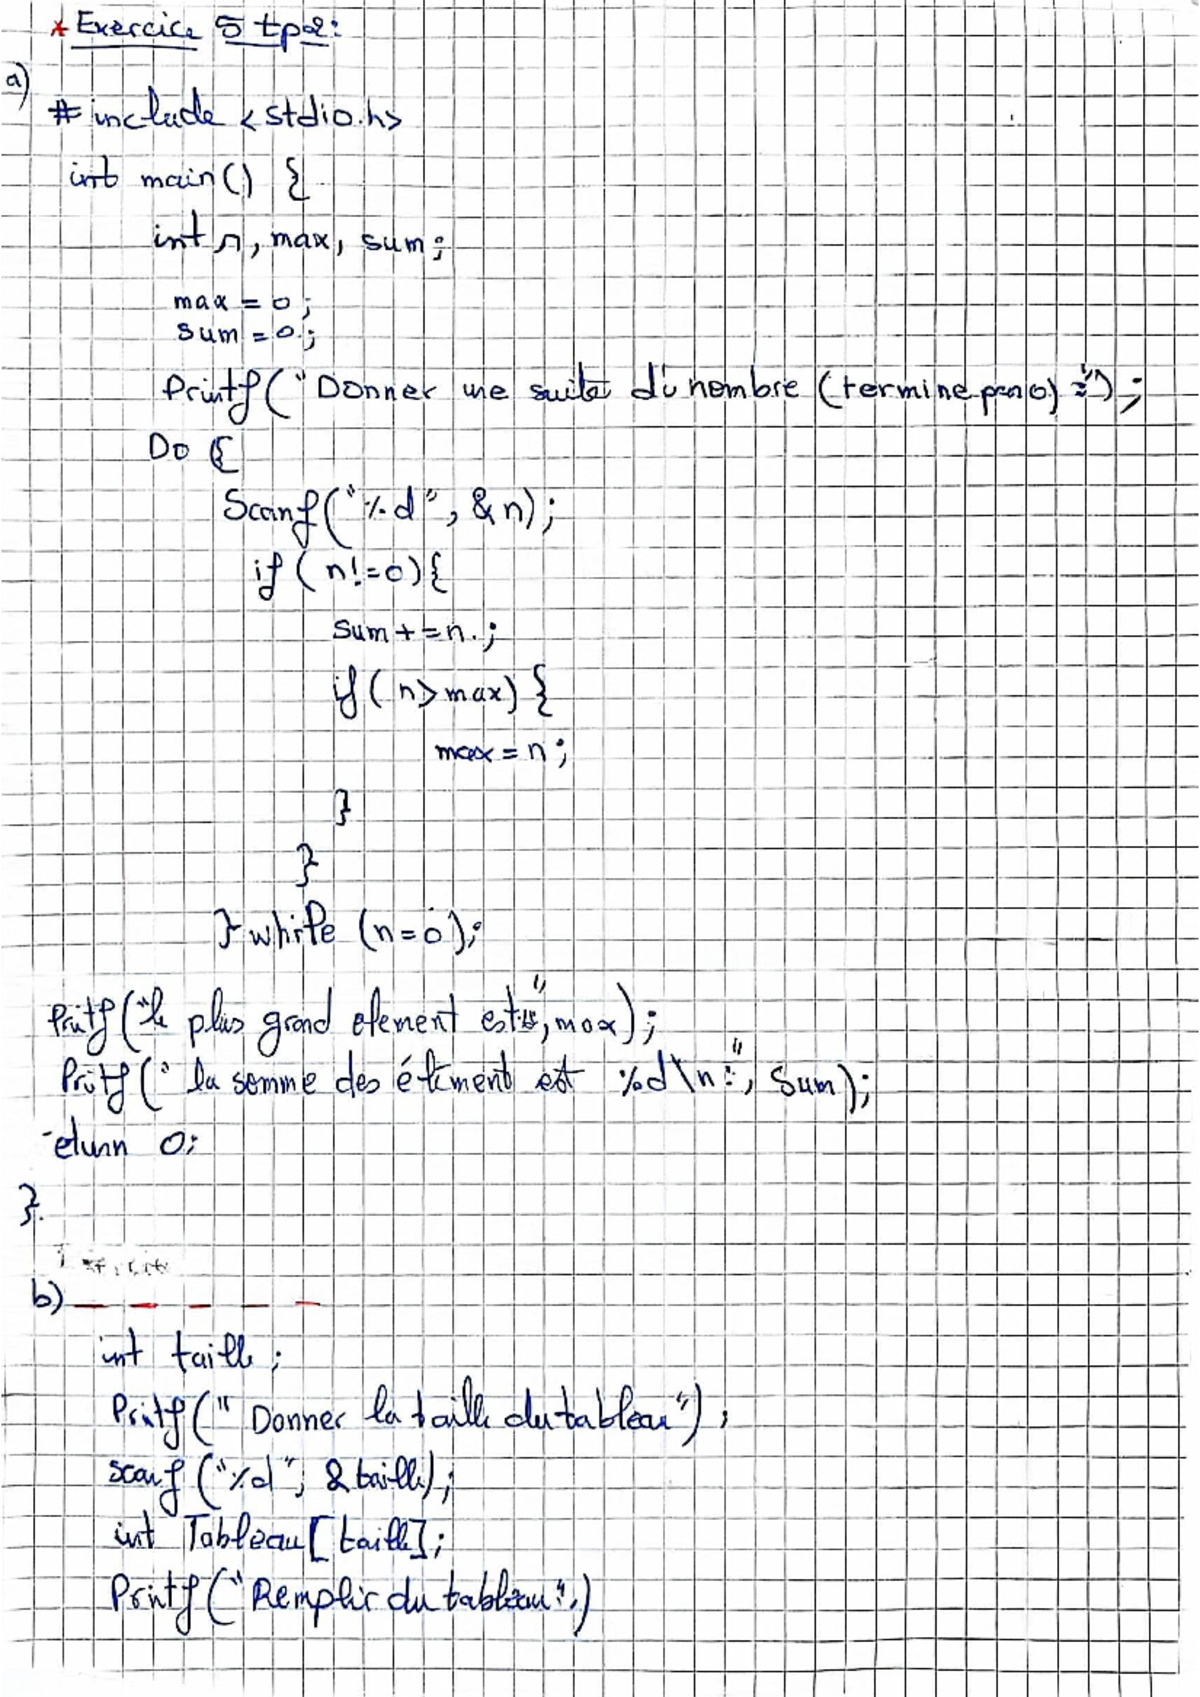 * Exercice 5 tp2:
a)
# include <stdio.h>
int main() {
int n, max, sum;
max = 0;
sum = 0;
Printf("Donner une suite di nombre (termine par 0) :");
Do {
Scanf("%d", &n);
if (n!=0){
sum+=n.;
if (n>max) {
max=n;
}
}
} while (n=0);
Printf("le plus grand element est", max);
Printf("la somme des élément est %d\n:", Sum);
return 0;
}.
b) _ _ _ _ _
int taille;
Printf("Donner la taille du tableau");
scanf("%d", &taille);
int Tableau[taille];
Printf("Remplir du tableau:")